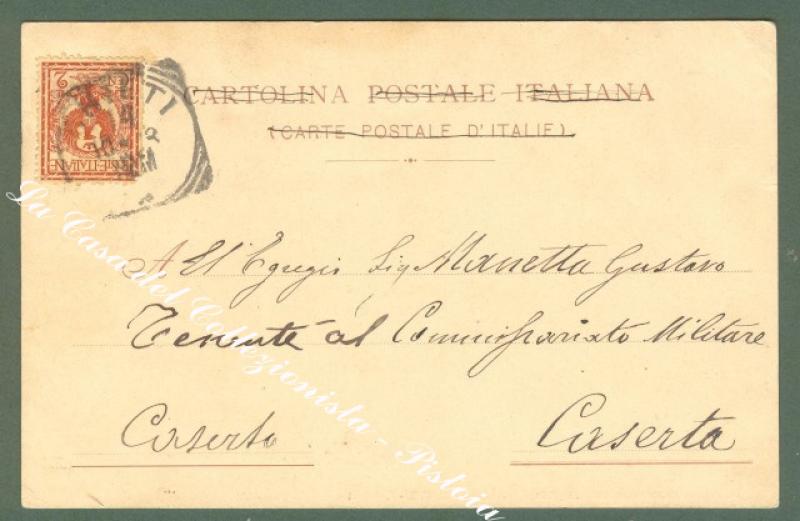 CARTOLINA POSTALE ITALIANA
(CARTE POSTALE D'ITALIE).
All'Egregio Sig. Manetta Gustavo
Tenente al Commissariato Militare
Caserta
Caserta
La Casa del Collezionista - Pistoia